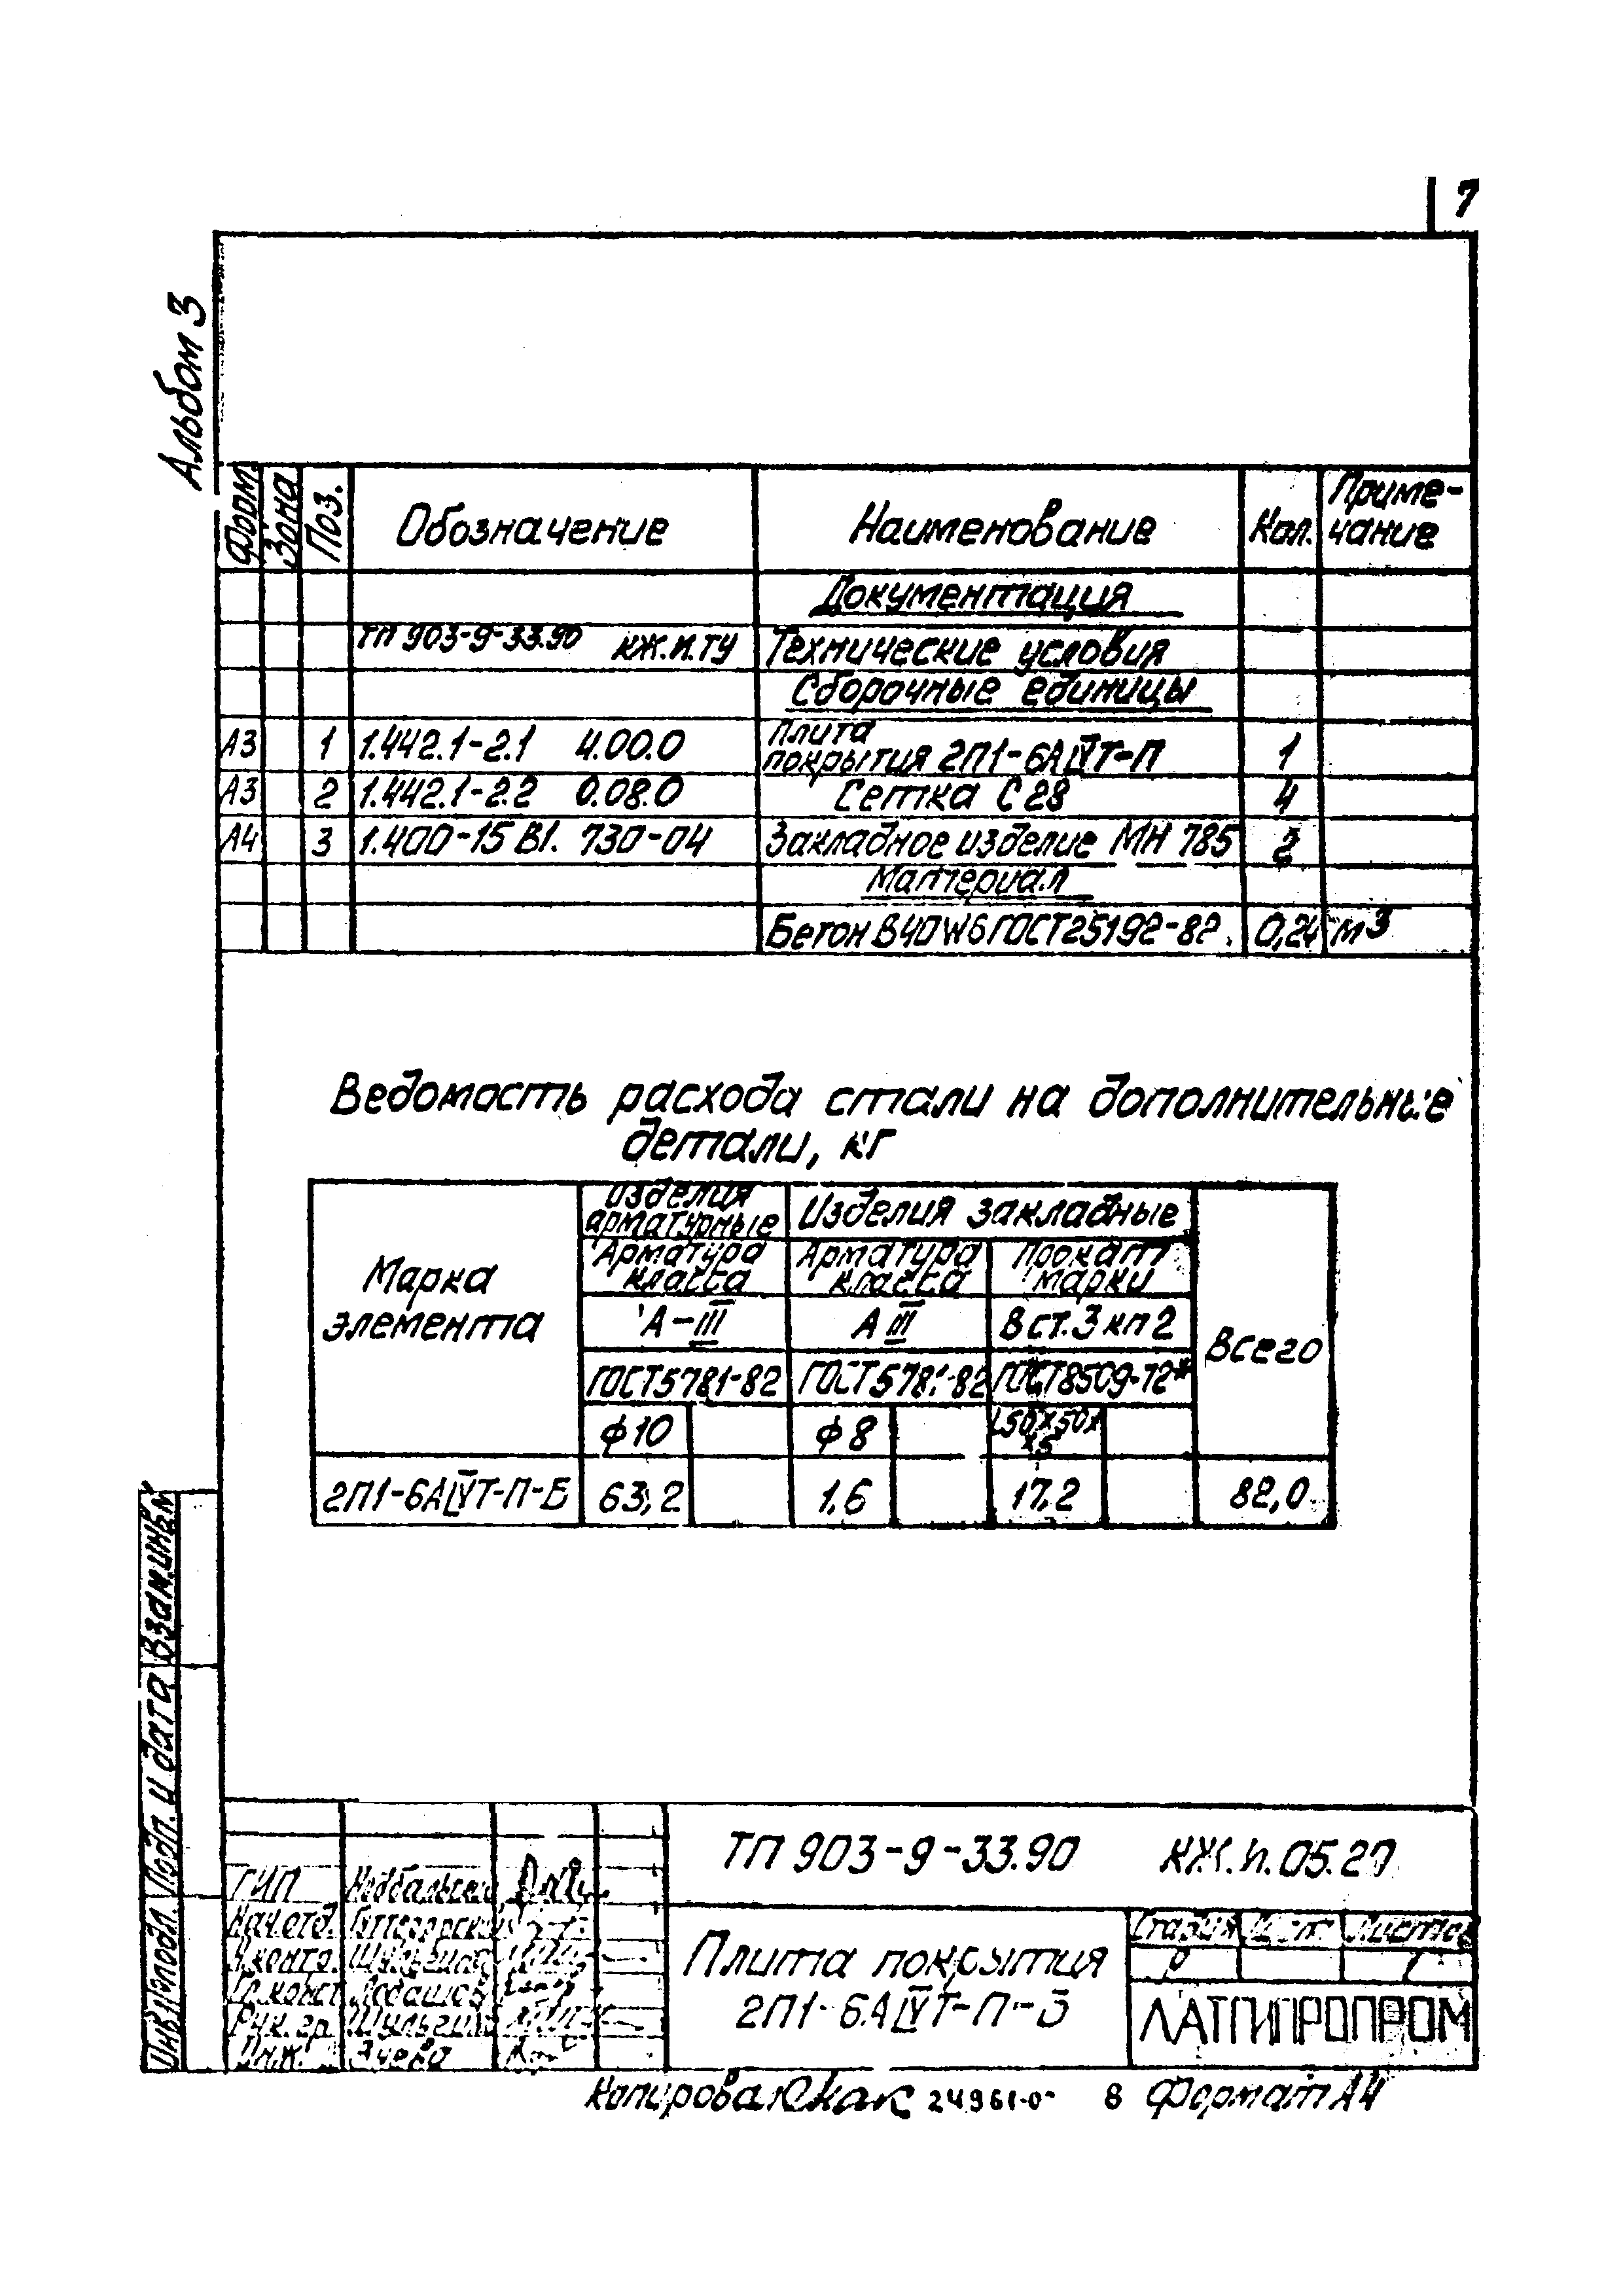 7
Альбом 3
Форм. Зона Поз. Обозначение Наименование Кол. Приме-
чание
Документация
ТП 903-9-33.90 КЖ.И.ТУ Технические условия
Сборочные единицы
А3 1 1.442.1-2.1 4.00.0 Плита
покрытия 2П1-6АIVТ-П 1
А3 2 1.442.1-2.2 0.08.0 Сетка С28 4
А4 3 1.400-15 В1. 730-04 Закладное изделие МН 785 2
Материал
Бетон В40 W6 ГОСТ 25192-82 0,24 м3
Ведомость расхода стали на дополнительные
детали, кг
Марка
элемента
Изделия
арматурные
Изделия закладные
Всего
Арматура
класса
Арматура
класса
Прокат
марки
А-III АIII Вст.3кп2
ГОСТ5781-82 ГОСТ5781-82 ГОСТ8509-72*
ф10 ф8 L50х50х
х5
2П1-6АIVТ-П-Б 63,2 1,6 17,2 82,0
Взам.инв.№
Подп. и дата
Инв.№подл.
ТП 903-9-33.90 КЖ.И.05.20
ГИП
Нач.отд.
Н.контр.
Гл.конст.
Рук.гр. Шульгина
Инж.
Плита покрытия
2П1-6АIVТ-П-Б
Стадия Лист Листов
Р 1
ЛАТГИПРОПРОМ
Копировал 24961-0 8 Формат А4